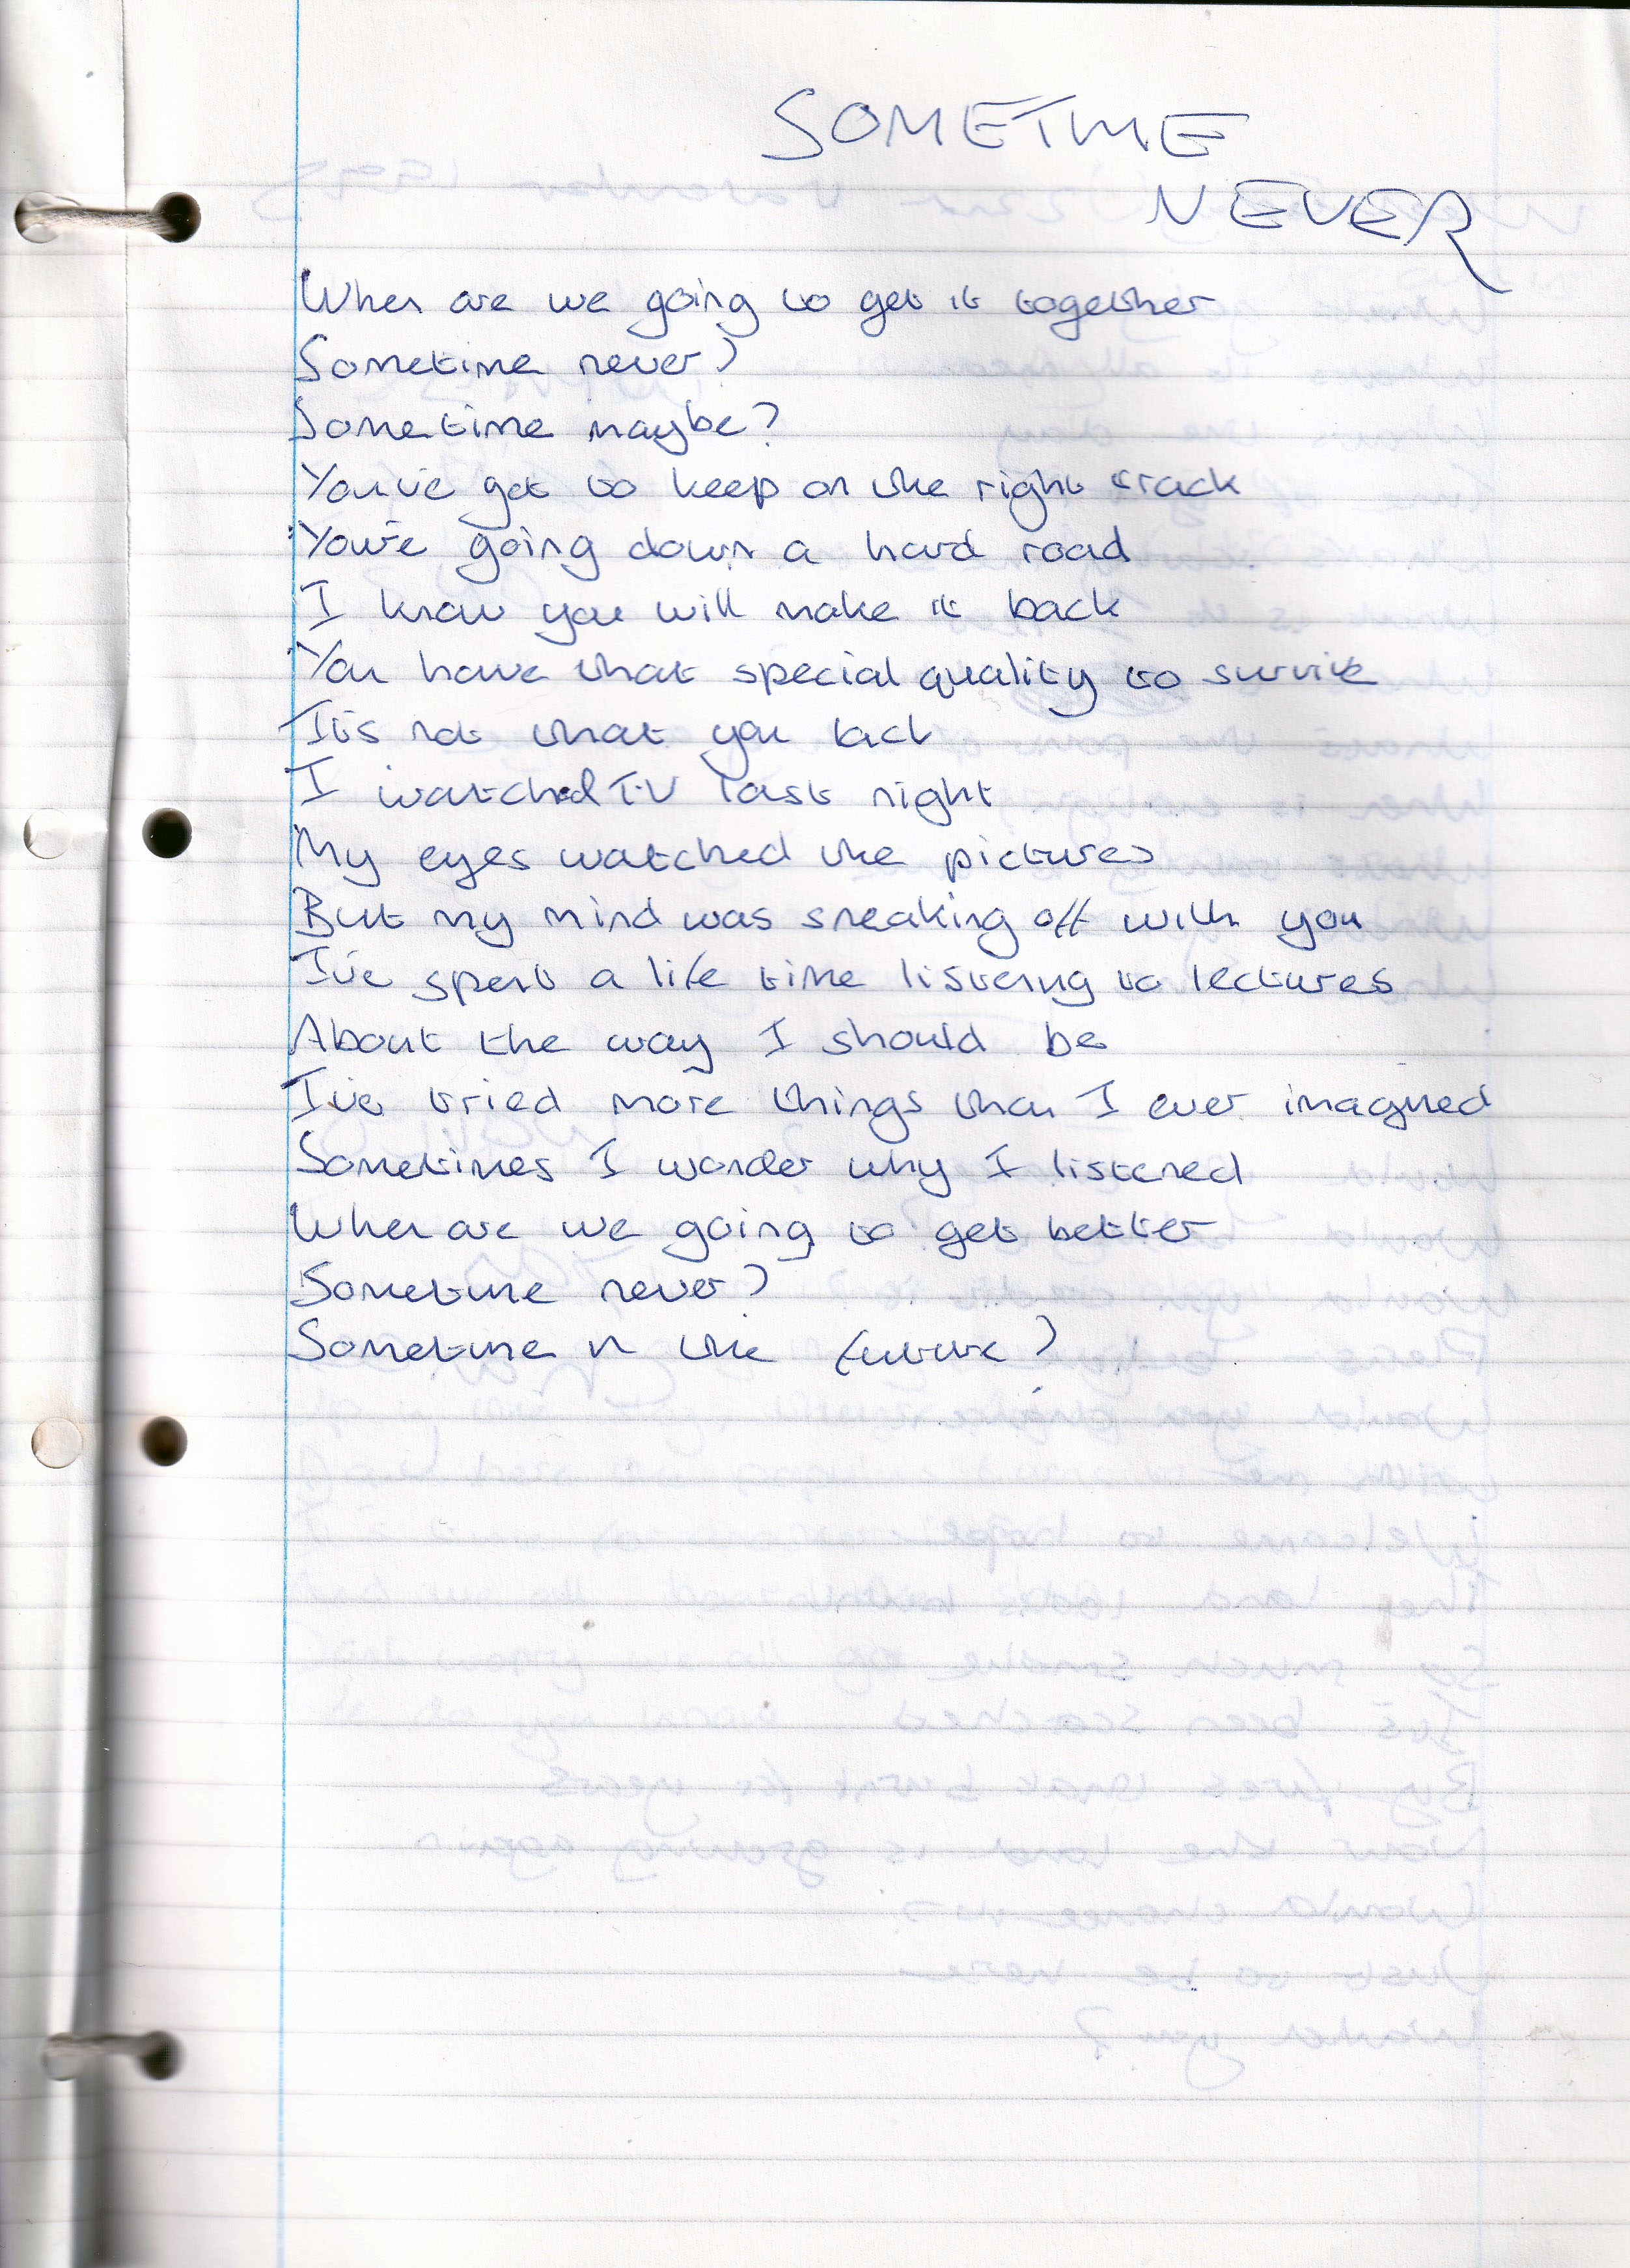 SOMETIME
NEVER
When are we going to get it together
Sometime never?
Sometime maybe?
You've got to keep on the right track
You're going down a hard road
I know you will make it back
You have that special quality to survive
It's not that you lack
I watched TV last night
My eyes watched the pictures
But my mind was sneaking off with you
I've spent a life time listening to lectures
About the way I should be
I've tried more things than I ever imagined
Sometimes I wonder why I listened
When are we going to get better
Sometime never?
Sometime in the future?